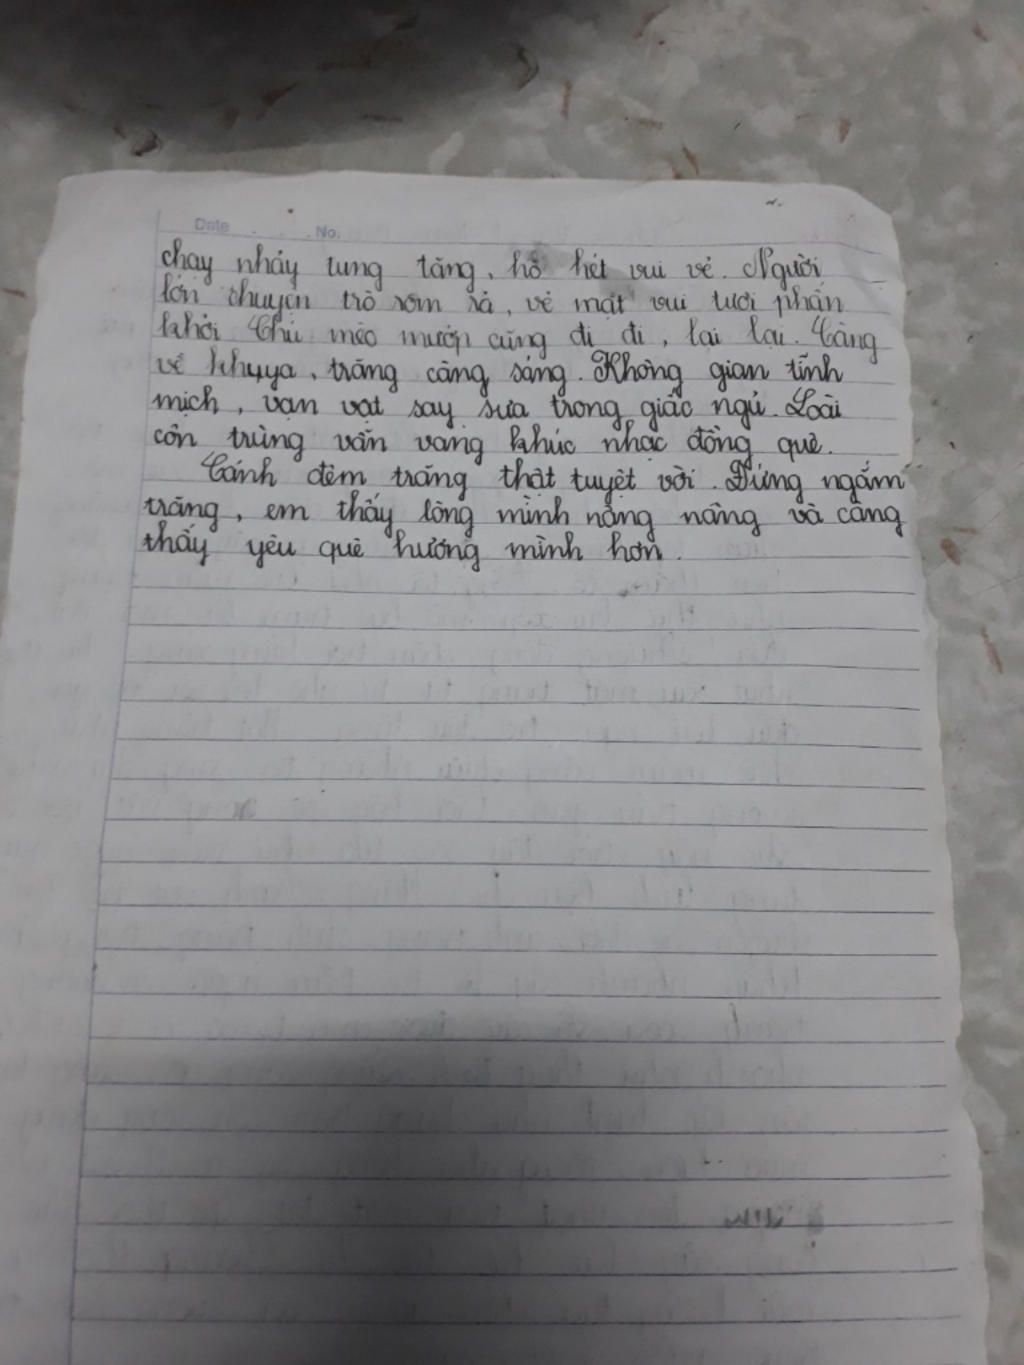 Date . . No.
chạy nhảy tung tăng, hò hét vui vẻ. Người
lớn chuyện trò rôm rả, vẻ mặt vui tươi phấn
khởi. Chú mèo mướp cũng đi đi, lại lại. Càng
về khuya, trăng càng sáng. Không gian tĩnh
mịch, vạn vật say sưa trong giấc ngủ. Loài
côn trùng vẫn vang khúc nhạc đồng quê.
Cảnh đêm trăng thật tuyệt vời. Đứng ngắm
trăng, em thấy lòng mình nâng nâng và càng
thấy yêu quê hương mình hơn.